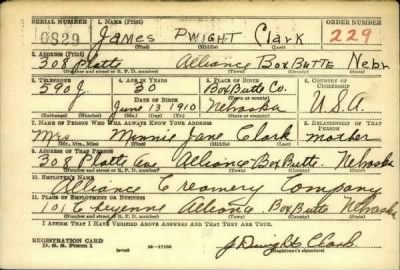 SERIAL NUMBER 1. NAME (Print) ORDER NUMBER
0829 James Dwight Clark 229
(First) (Middle) (Last)
2. ADDRESS (Print)
308 Platte Alliance Box Butte Nebr
(Number and street or R. F. D. number) (Town) (County) (State)
3. TELEPHONE 4. AGE IN YEARS 5. PLACE OF BIRTH 6. COUNTRY OF CITIZENSHIP
590J 30 Box Butte Co.
DATE OF BIRTH (Town or county)
June 13 1910 Nebraska U.S.A.
(Exchange) (Number) (Mo.) (Day) (Yr.) (State or country)
7. NAME OF PERSON WHO WILL ALWAYS KNOW YOUR ADDRESS 8. RELATIONSHIP OF THAT PERSON
Mrs. Minnie Jane Clark mother
(Mr., Mrs., Miss) (First) (Middle) (Last)
9. ADDRESS OF THAT PERSON
308 Platte Ave Alliance Box Butte. Nebraska
(Number and street or R. F. D. number) (Town) (County) (State)
10. EMPLOYER'S NAME
Alliance Creamery Company
11. PLACE OF EMPLOYMENT OR BUSINESS
101 Cheyenne Alliance. Box Butte Nebraska
(Number and street or R. F. D. number) (Town) (County) (State)
I AFFIRM THAT I HAVE VERIFIED ABOVE ANSWERS AND THAT THEY ARE TRUE.
REGISTRATION CARD
D. S. S. Form 1 (over) J Dwight Clark
(Registrant's signature)